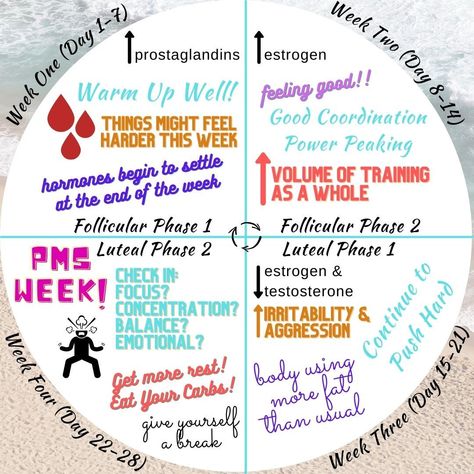 Week One (Day 1-7)
prostaglandins
Warm Up Well!
THINGS MIGHT FEEL
HARDER THIS WEEK
hormones begin to settle
at the end of the week
Follicular Phase 1
Week Two (Day 8-14)
estrogen
feeling good!!
Good Coordination
Power Peaking
VOLUME OF TRAINING
AS A WHOLE
Follicular Phase 2
Luteal Phase 1
estrogen &
testosterone
IRRITABILITY &
AGGRESSION
Continue to
Push Hard
body using
more fat
than usual
Week Three (Day 15-21)
Luteal Phase 2
PMS
WEEK!
CHECK IN:
FOCUS?
CONCENTRATION?
BALANCE?
EMOTIONAL?
Get more rest!
Eat Your Carbs!
give yourself
a break
Week Four (Day 22-28)